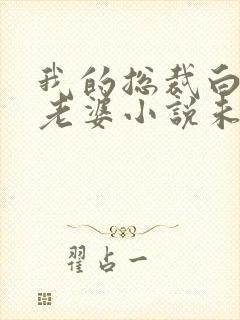 我的总裁白
老婆小说未
翟占一